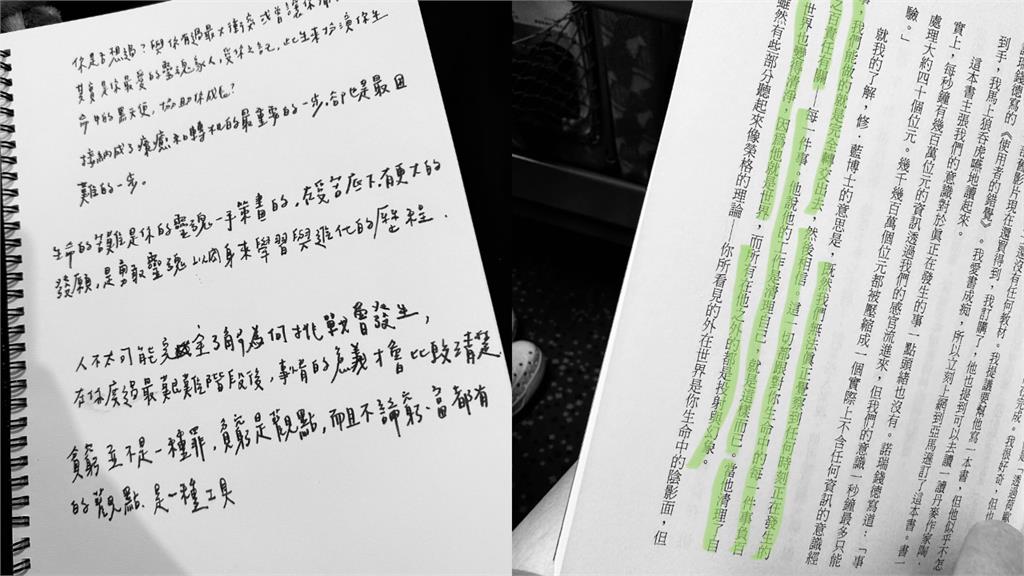 你是否想過？與你有過最大衝突或曾讓你
其實是你最愛的靈魂家人，受你之託，此生來扮演你生
命中的黑天使，協助你成長？
接納成了療癒和轉和的最重要的一步，卻也是最困
難的一步。
生命的苦難是你的靈魂一手策畫的，在受苦底下有更大的
發願，是勇敢靈魂以肉身來學習與進化的歷程．
人不太可能完全了解為何挑戰會發生，
在你度過最艱難階段後，事情的意義才會比較清楚
貧窮並不是一種罪，貧窮是觀點，而且不論窮、富都有
的觀點．是一種工具
還沒有任何教材。我提議要幫他寫一本書，但他似乎不怎
影片現在還買得到，我訂購了，他也提到可以去讀一讀丹麥作家陶．
諾瑞錢德寫的《使用者的錯覺》。我愛書成痴，所以立刻上網到亞馬遜訂了這本書。書一
到手，我馬上狼吞虎嚥地讀起來。
這本書主張我們的意識對於真正在發生的事一點頭緒也沒有。諾瑞錢德寫道：「事
實上，每秒鐘有幾百萬位元的資訊透過我們的感官流進來，但我們的意識一秒鐘最多只能
處理大約四十個位元。幾千幾百萬個位元都被壓縮成一個實際上不含任何資訊的意識經
驗。」
就我的了解，修．藍博士的意思是，既然我們無法真正覺察到任何時刻正在發生的
事，我們能做的就是完全轉交出去，然後相信。這一切都跟對你生命中的每一件事負百
之百責任有關——每一件事。他說他的工作是清理自己，就是這樣而已。當他清理了自
世界也變得清晰，因為他就是世界，而所有在他之外的都是投射與幻象。
雖然有些部分聽起來像榮格的理論——你所看見的外在世界是你生命中的陰影面，但